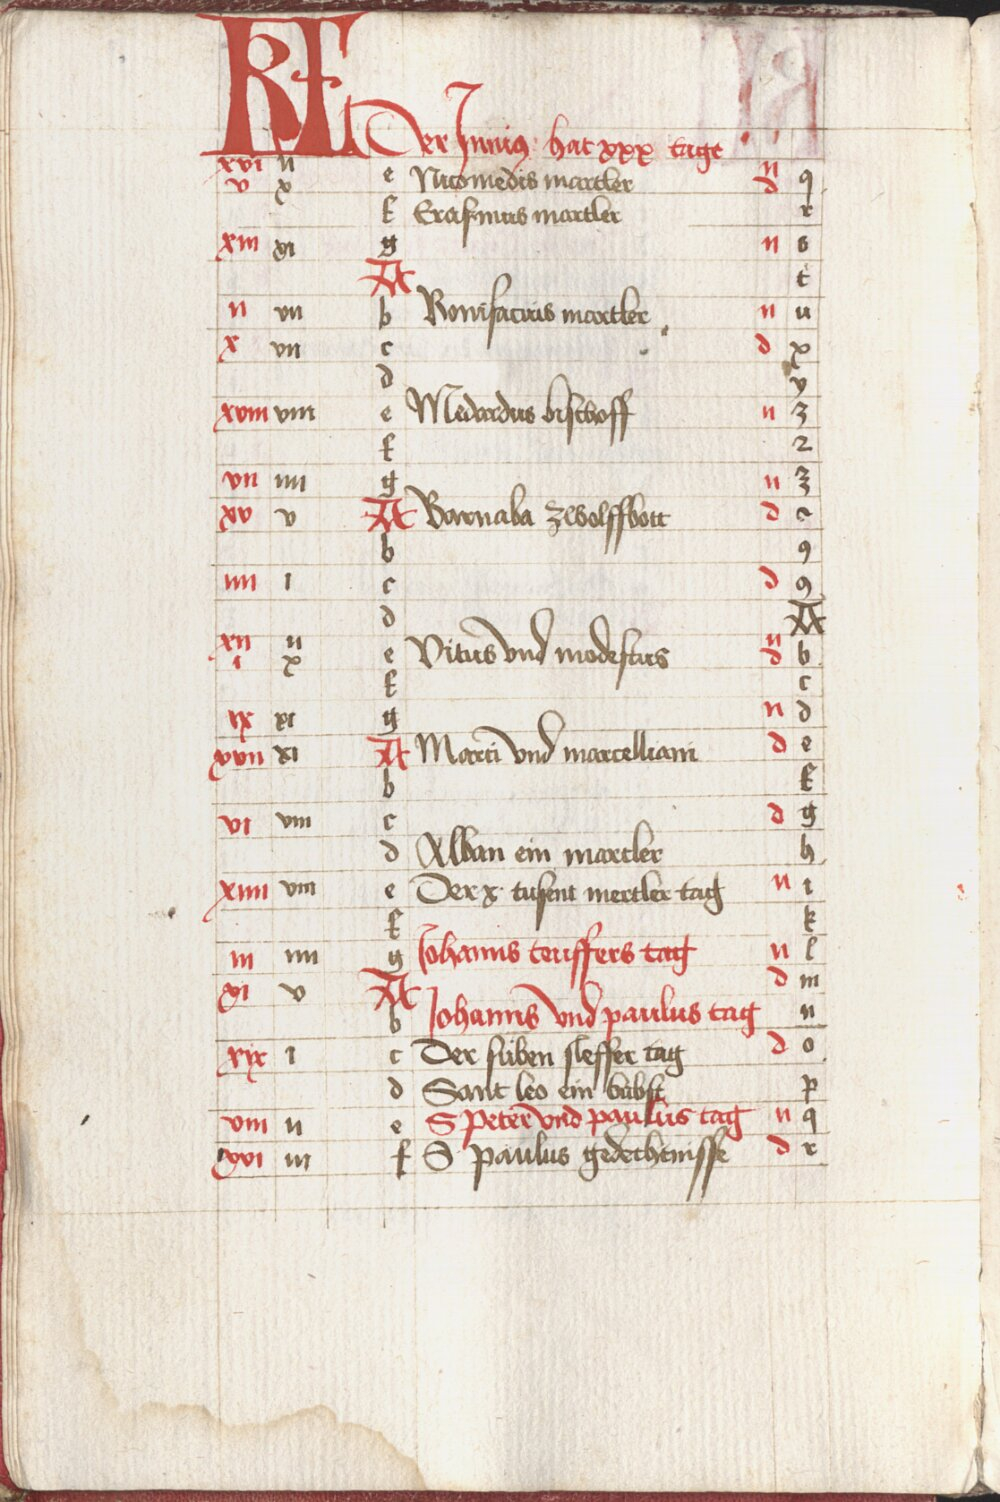 KL Der Junius hat xxx tage
xvi ii n
v x e Nicomedis martler d q
f Erasmus martler r
xiii xi g n s
A t
ii vii b Bonifacius martler n u
x vii c d x
d y
xviii viii e Medardus bischoff n z
f 2
vii iiii g n 3
xv v A Barnaba zwolffbott d c
b 9
iiii i c d 9
d A
xii ii n
i x e Vitus vnd modestus d b
f c
ix xi g n d
xvii xi A Marci vnd marcelliani d e
b f
vi viii c d g
d Alban ein martler h
xiiii viii e Der x tusent mertler tag n i
f k
iii iiii g Johanns teuffers tag n l
xi v A d m
b Johanns vnd paulus tag n
xix i c Der siben sleffer tag d o
d Sant leo ein babst p
viii ii e S Peter vnd paulus tag n q
xvi iii f S paulus gedechtnisse d r